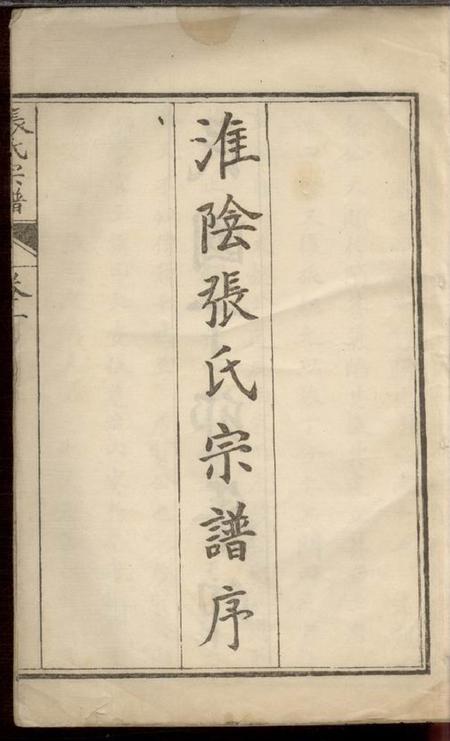 淮陰張氏宗譜序
張氏宗譜
卷一